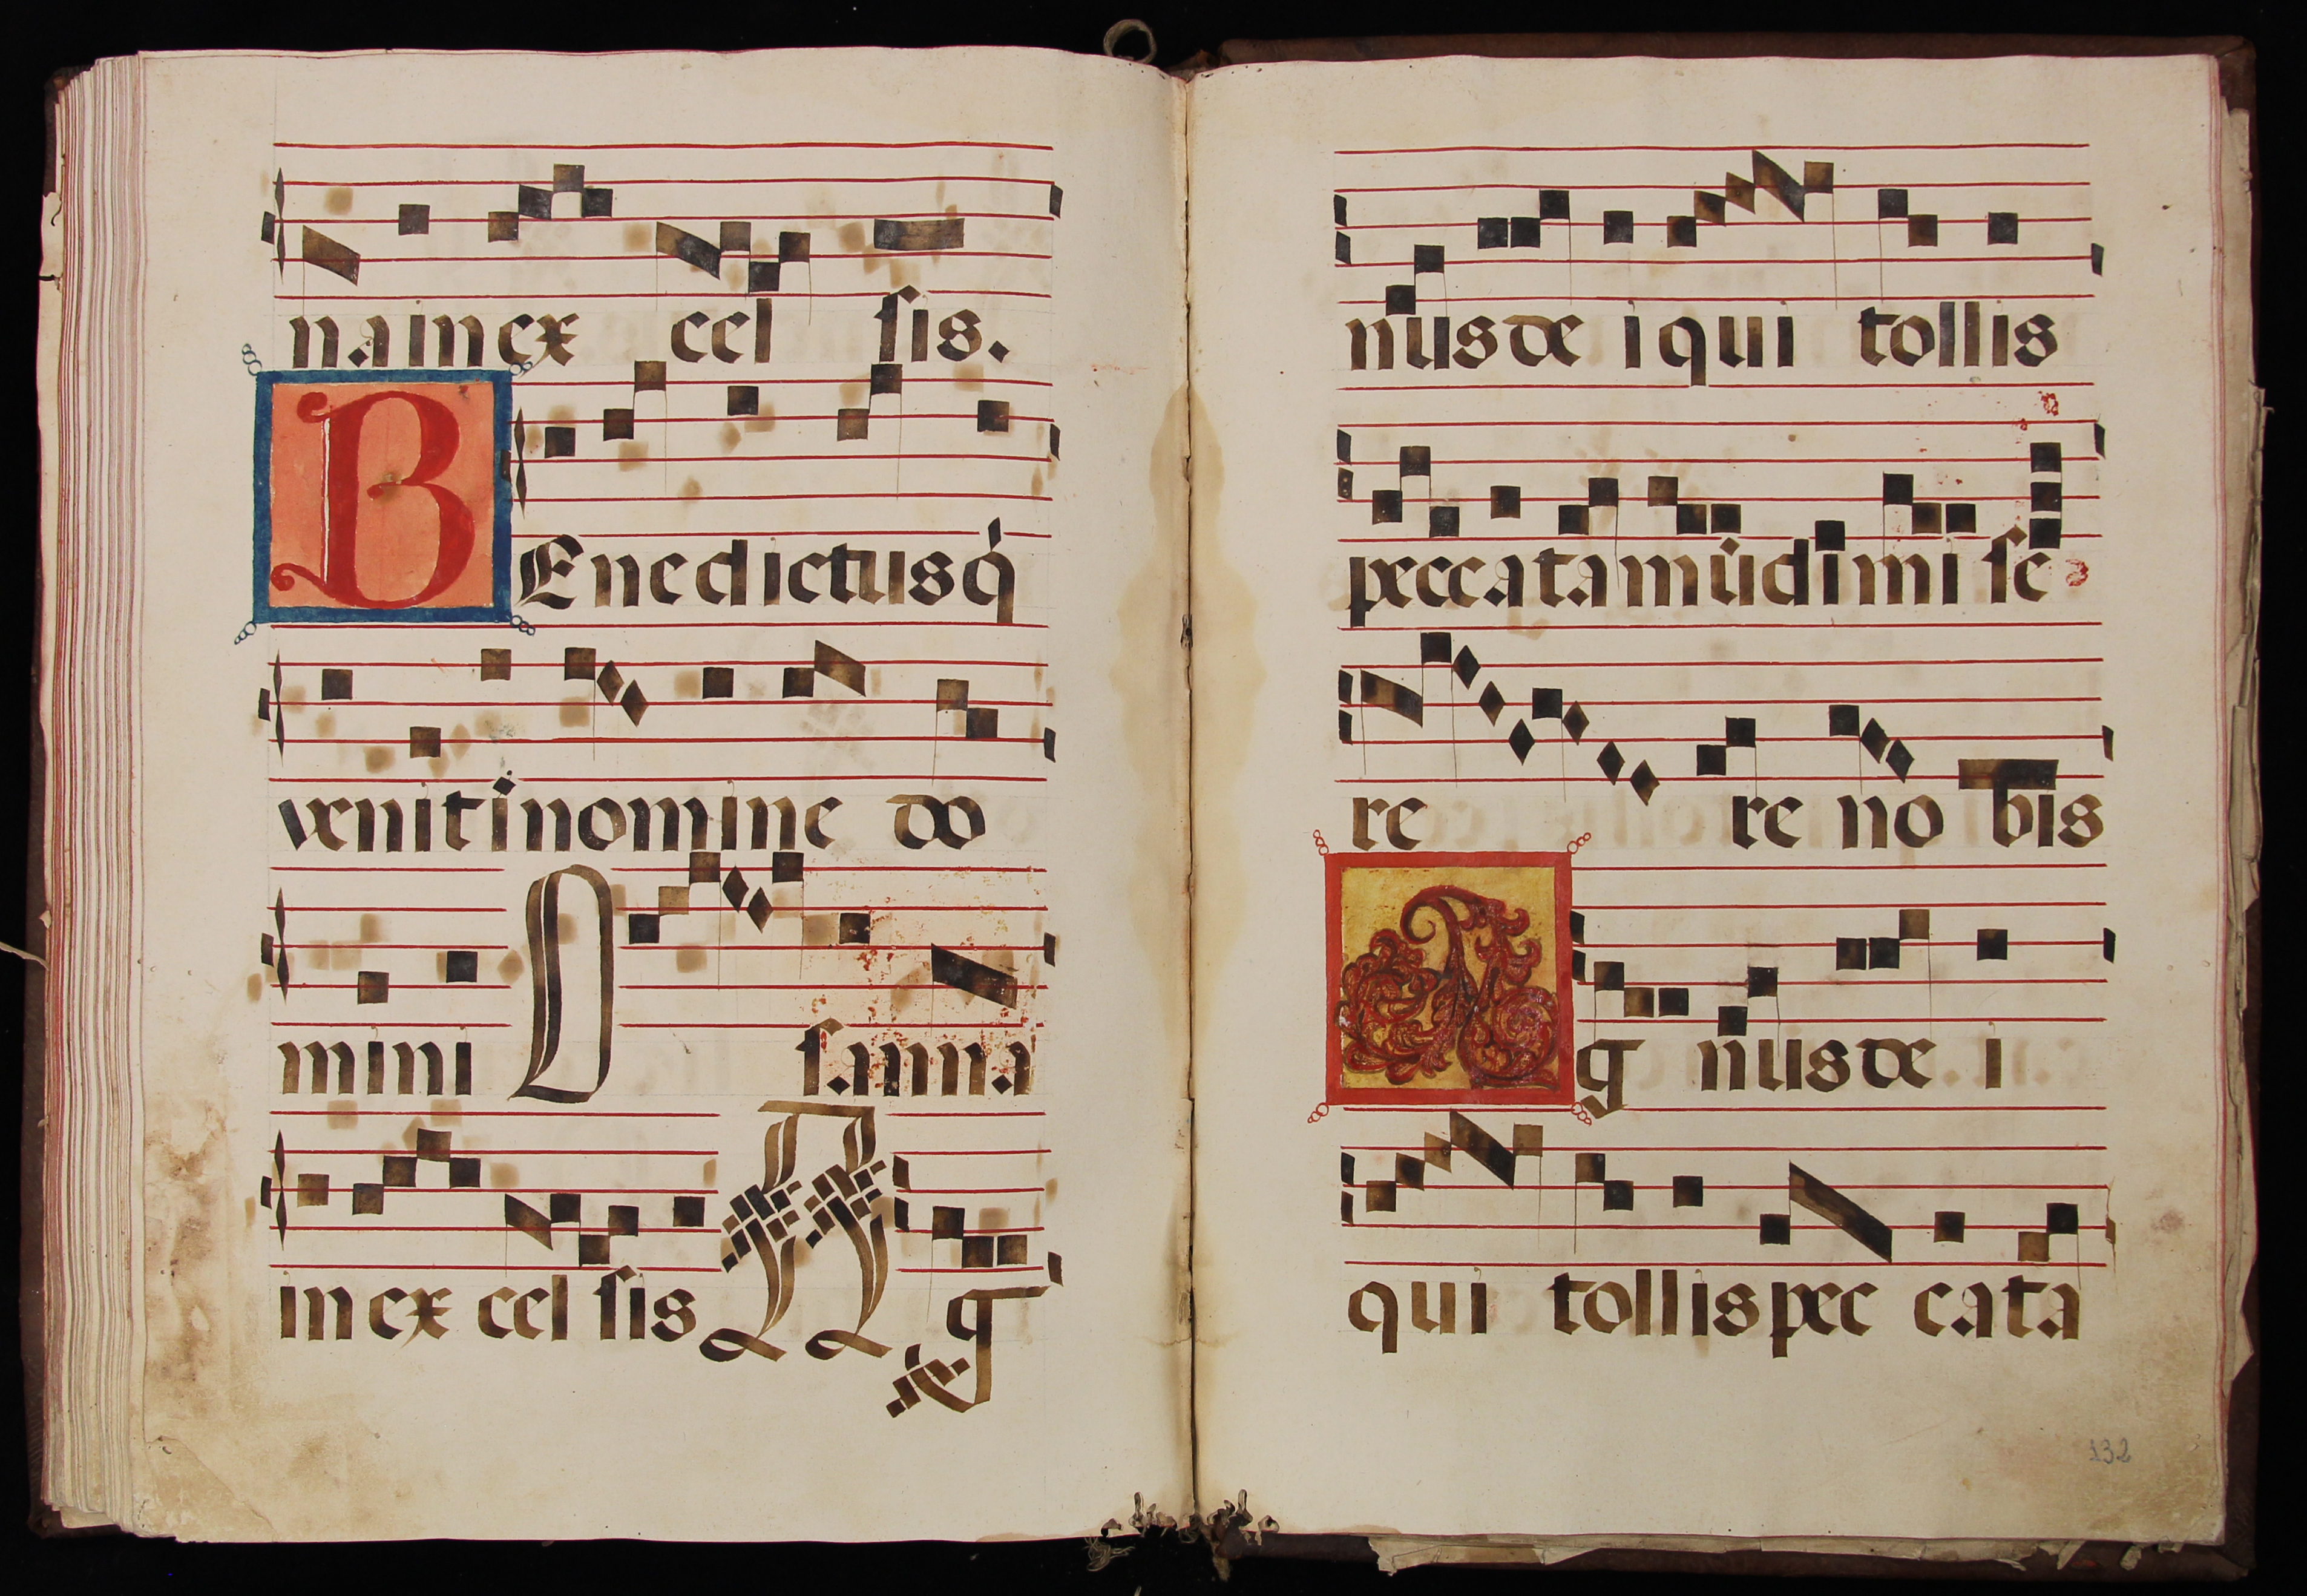 na in ex cel sis.
BEnedictus q̇
venit in nomine do
mini O sanna
in ex cel sis A g
nus de i qui tollis
peccata mūdi mi se
re re no bis
A g nus de i
qui tollis pec cata
132